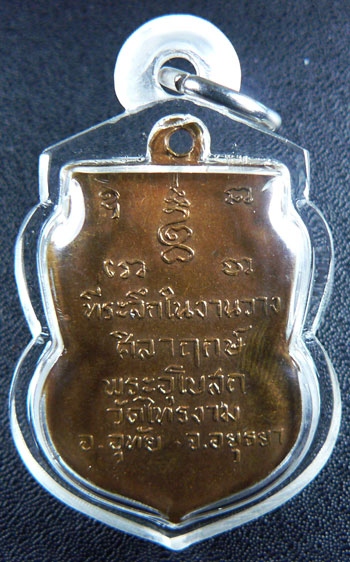 ที่ระลึกในงานวาง
ศิลาฤกษ์
พระอุโบสถ
วัดไทรงาม
อ.อุทัย จ.อยุธยา